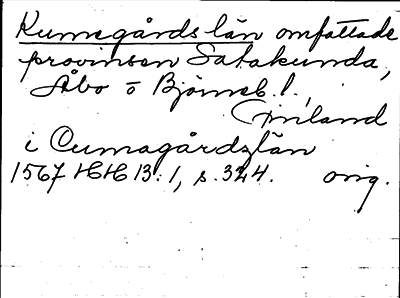 Kumogårds län omfattade
provinsen Satakunda,
Åbo o Björneb. l.,
Finland
i Cumagårdzlän
1567 HH 13:1, s. 324. orig.